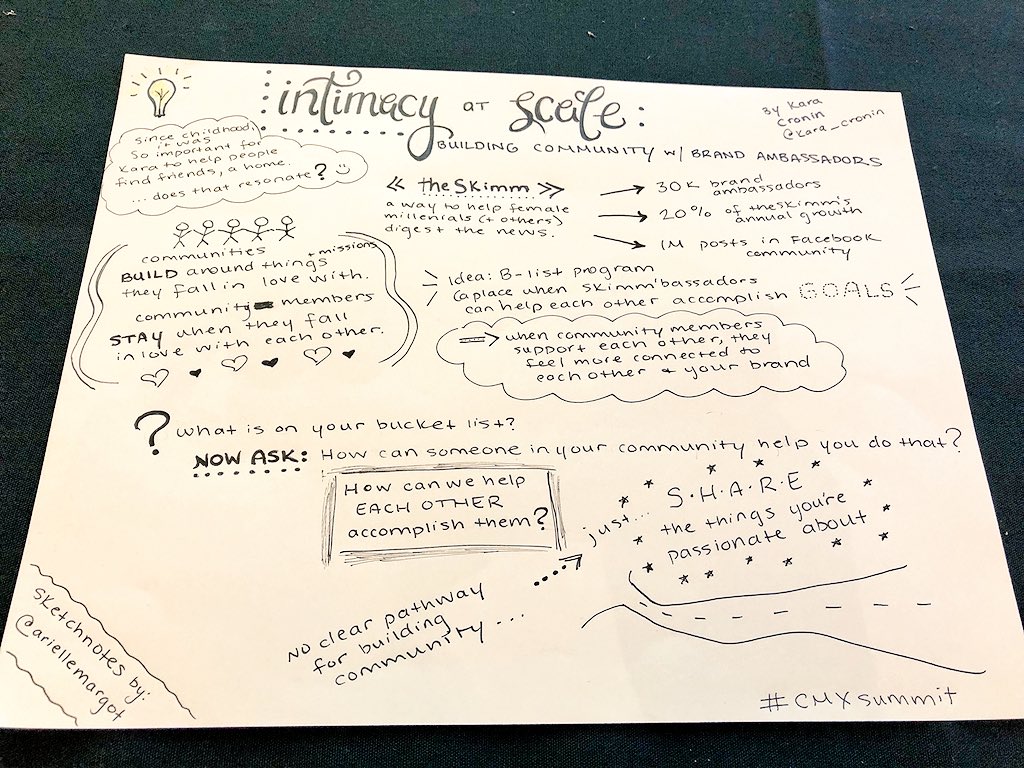 intimacy AT scale:
BUILDING COMMUNITY W/ BRAND AMBASSADORS
By Kara
Cronin
@kara_cronin
since childhood,
it was
so important for
Kara to help people
find friends, a home.
... does that resonate?
<< theSkimm >>
a way to help female
millenials (+ others)
digest the news.
30K brand
ambassadors
20% of theskimm's
annual growth
1M posts in Facebook
community
communities
BUILD around things + missions
they fall in love with.
community members
STAY when they fall
in love with each other.
Idea: B-list program
(a place when Skimm'bassadors
can help each other accomplish GOALS
when community members
support each other, they
feel more connected to
each other + your brand
? what is on your bucket list?
NOW ASK: How can someone in your community help you do that?
How can we help
EACH OTHER
accomplish them?
just... S.H.A.R.E
the things you're
passionate about
NO clear pathway
for building
community...
sketchnotes by:
@ariellemargot
#CMXsummit